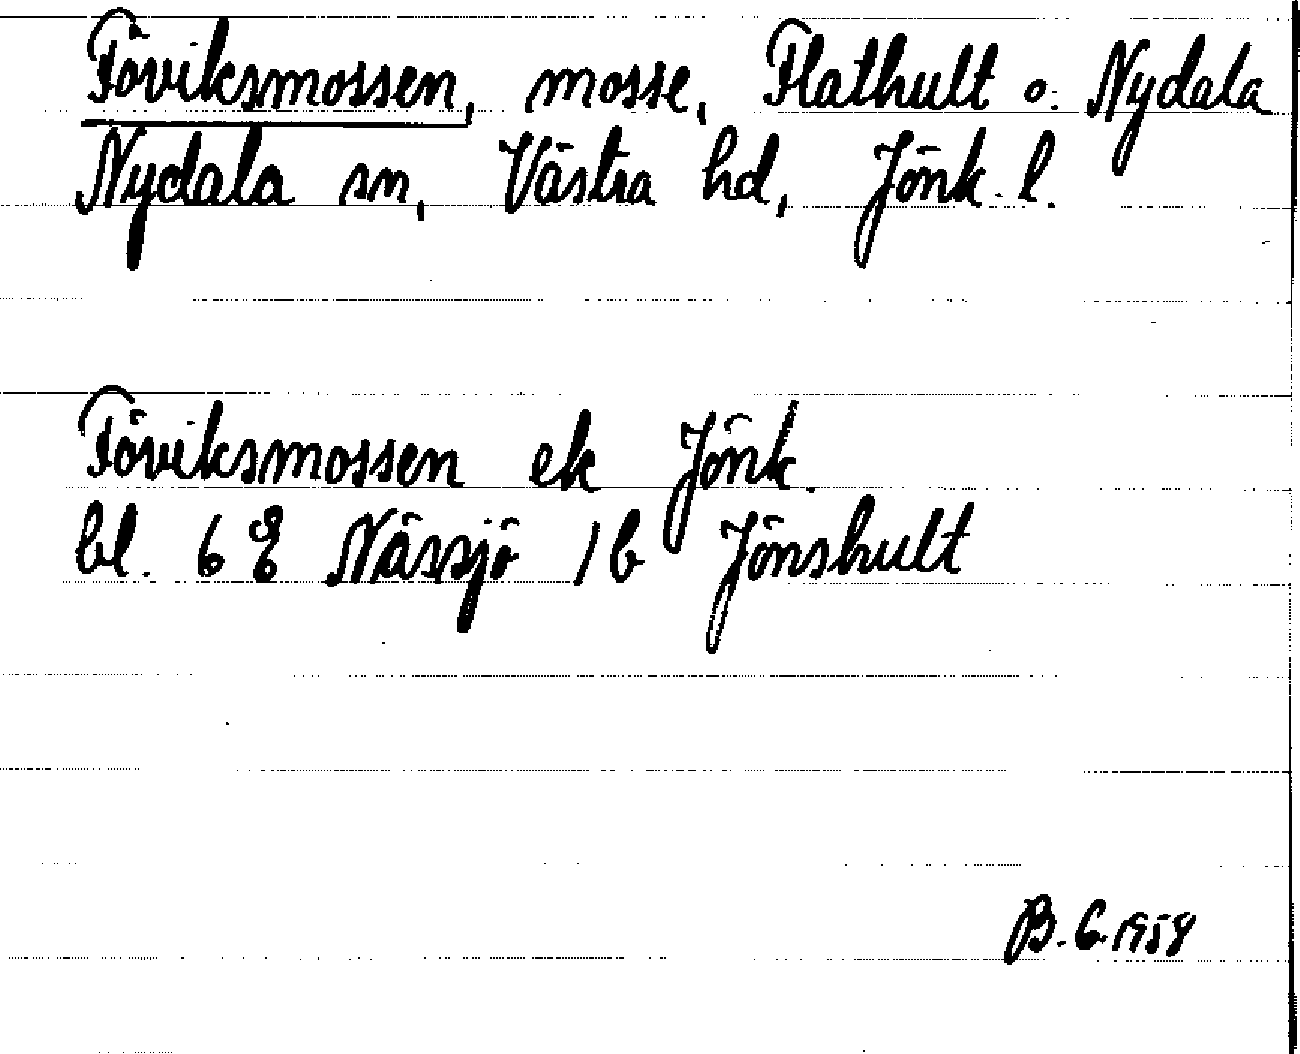 Föviksmossen, mosse, Flathult o. Nydala
Nydala sn, Västra hd, Jönk. l.
Föviksmossen ek Jönk.
bl. 6 E Nässjö 1 b Jönshult
B. G. 1958